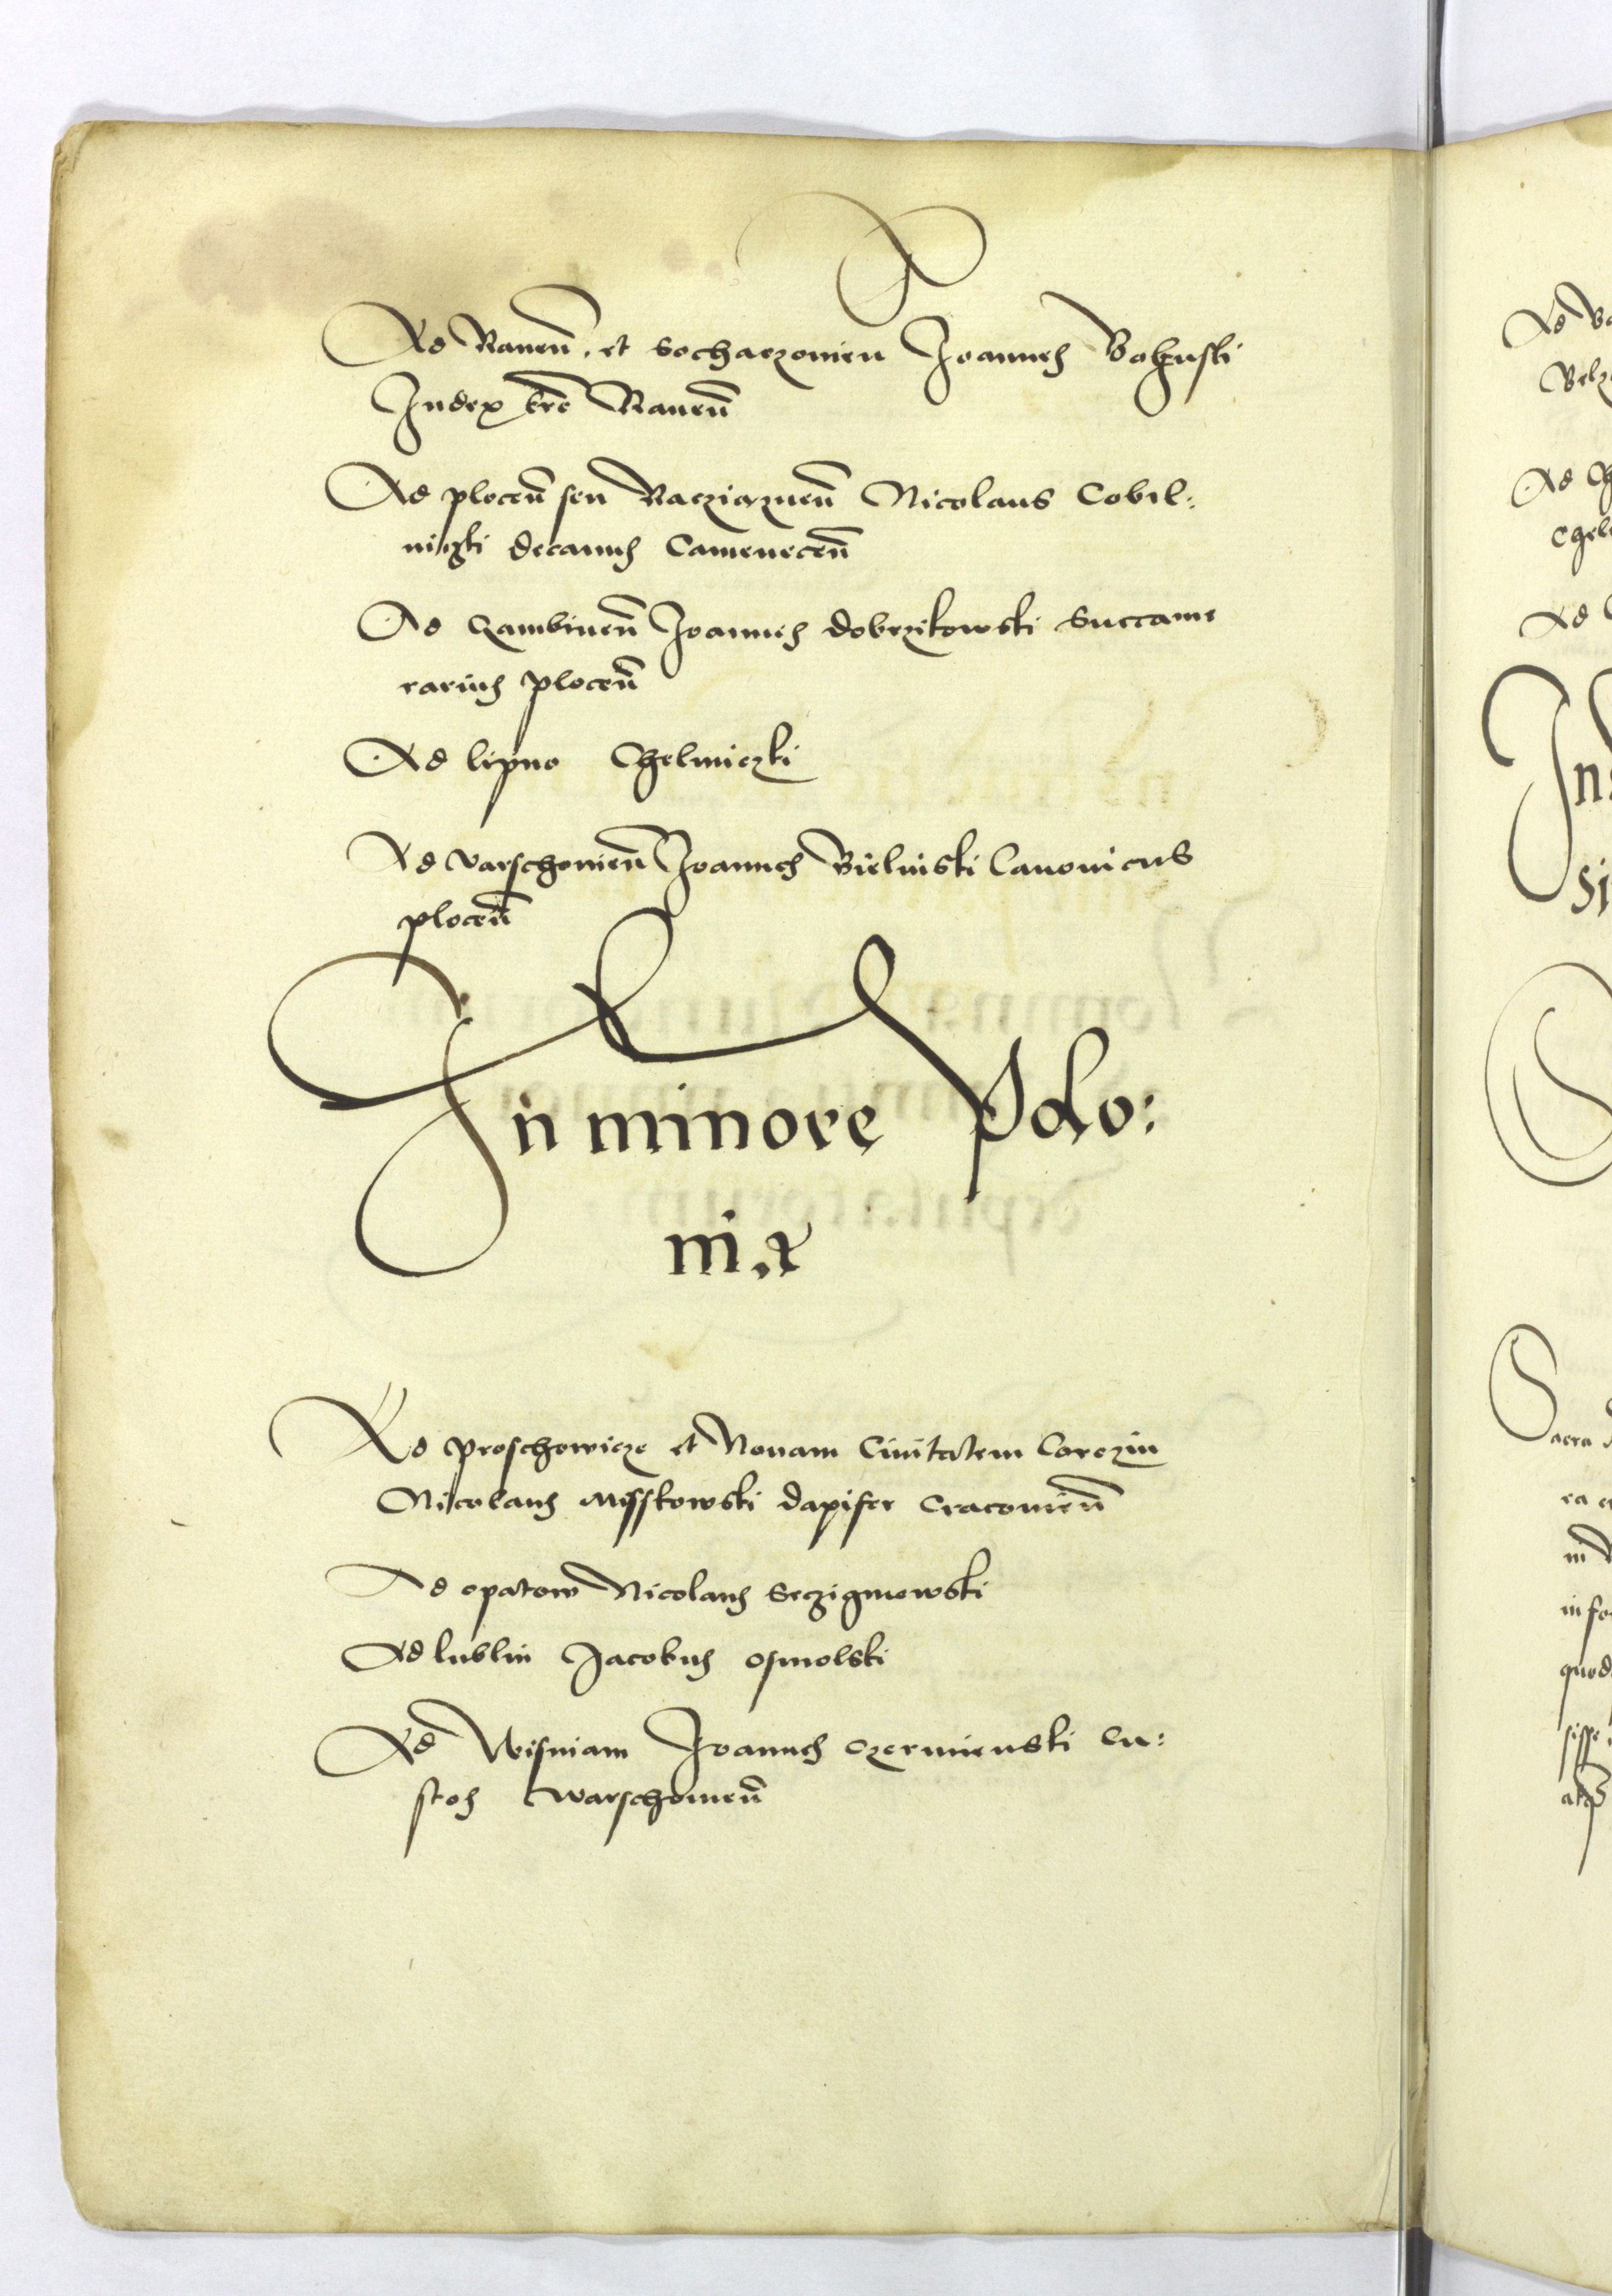 Ad Raueñ. et Sochaczouien Joannes Boguski
Judex tr̃e Raueñ
Ad ploceñ seu Racziazneñ Nicolaus Cobil:
niczki decanus Cameneceñ
Ad Zambineñ Joannes dobrzikowski Succame
rarius ploceñ
Ad lipno Chelmiczki
Ad Varschouieñ Joannes Bielinski Canonicus
ploceñ
In minore Polo:
niæ
Ad proschowicze et Nouam Ciuitatem Corczin
Nicolaus Misskowski dapifer Cracouieñ
Ad opatow Nicolaus Seczigniowski
Ad lublin Jacobus osmolski
Ad Wisniam Joannes czermienski Cu:
stos Warschouieñ
Ad
Belz
Ad
Chel
Ad
In
si
Sacra
ra
in
info
quod
sisse
atque